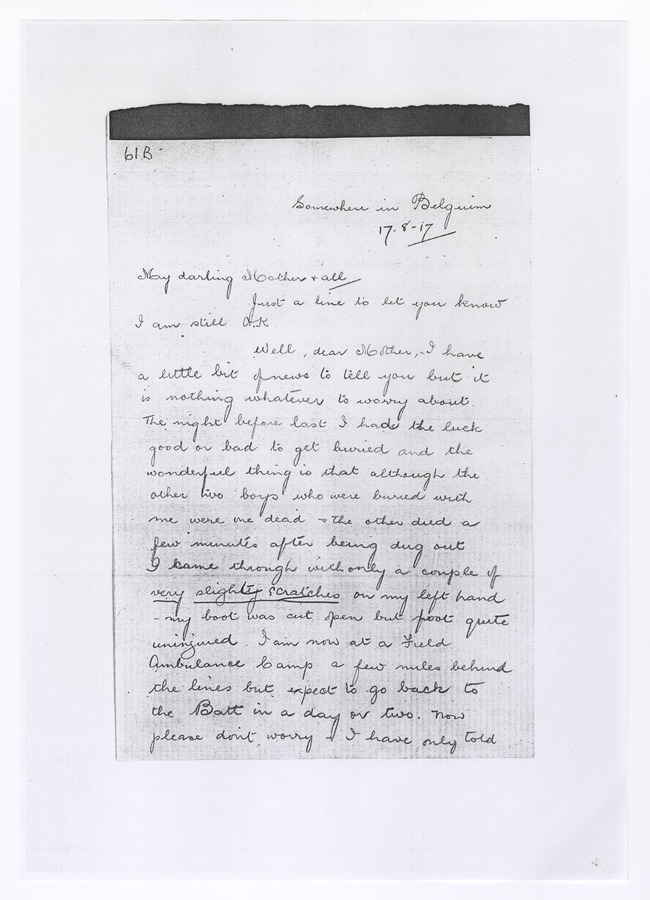 61B
Somewhere in Belguim
17-8-17
My darling Mother & all
Just a line to let you know
I am still O.K
Well, dear Mother, I have
a little bit of news to tell you but it
is nothing whatever to worry about.
The night before last I had the luck
good or bad to get buried and the
wonderful thing is that although the
other two boys who were buried with
me were one dead & the other died a
few minutes after being dug out
I came through with only a couple of
very slighty scratches on my left hand
- my boot was cut open but foot quite
uninjured. I am now at a Field
Ambulance Camp a few miles behind
the lines but expect to go back to
the Batt in a day or two. Now
please don't worry & I have only told